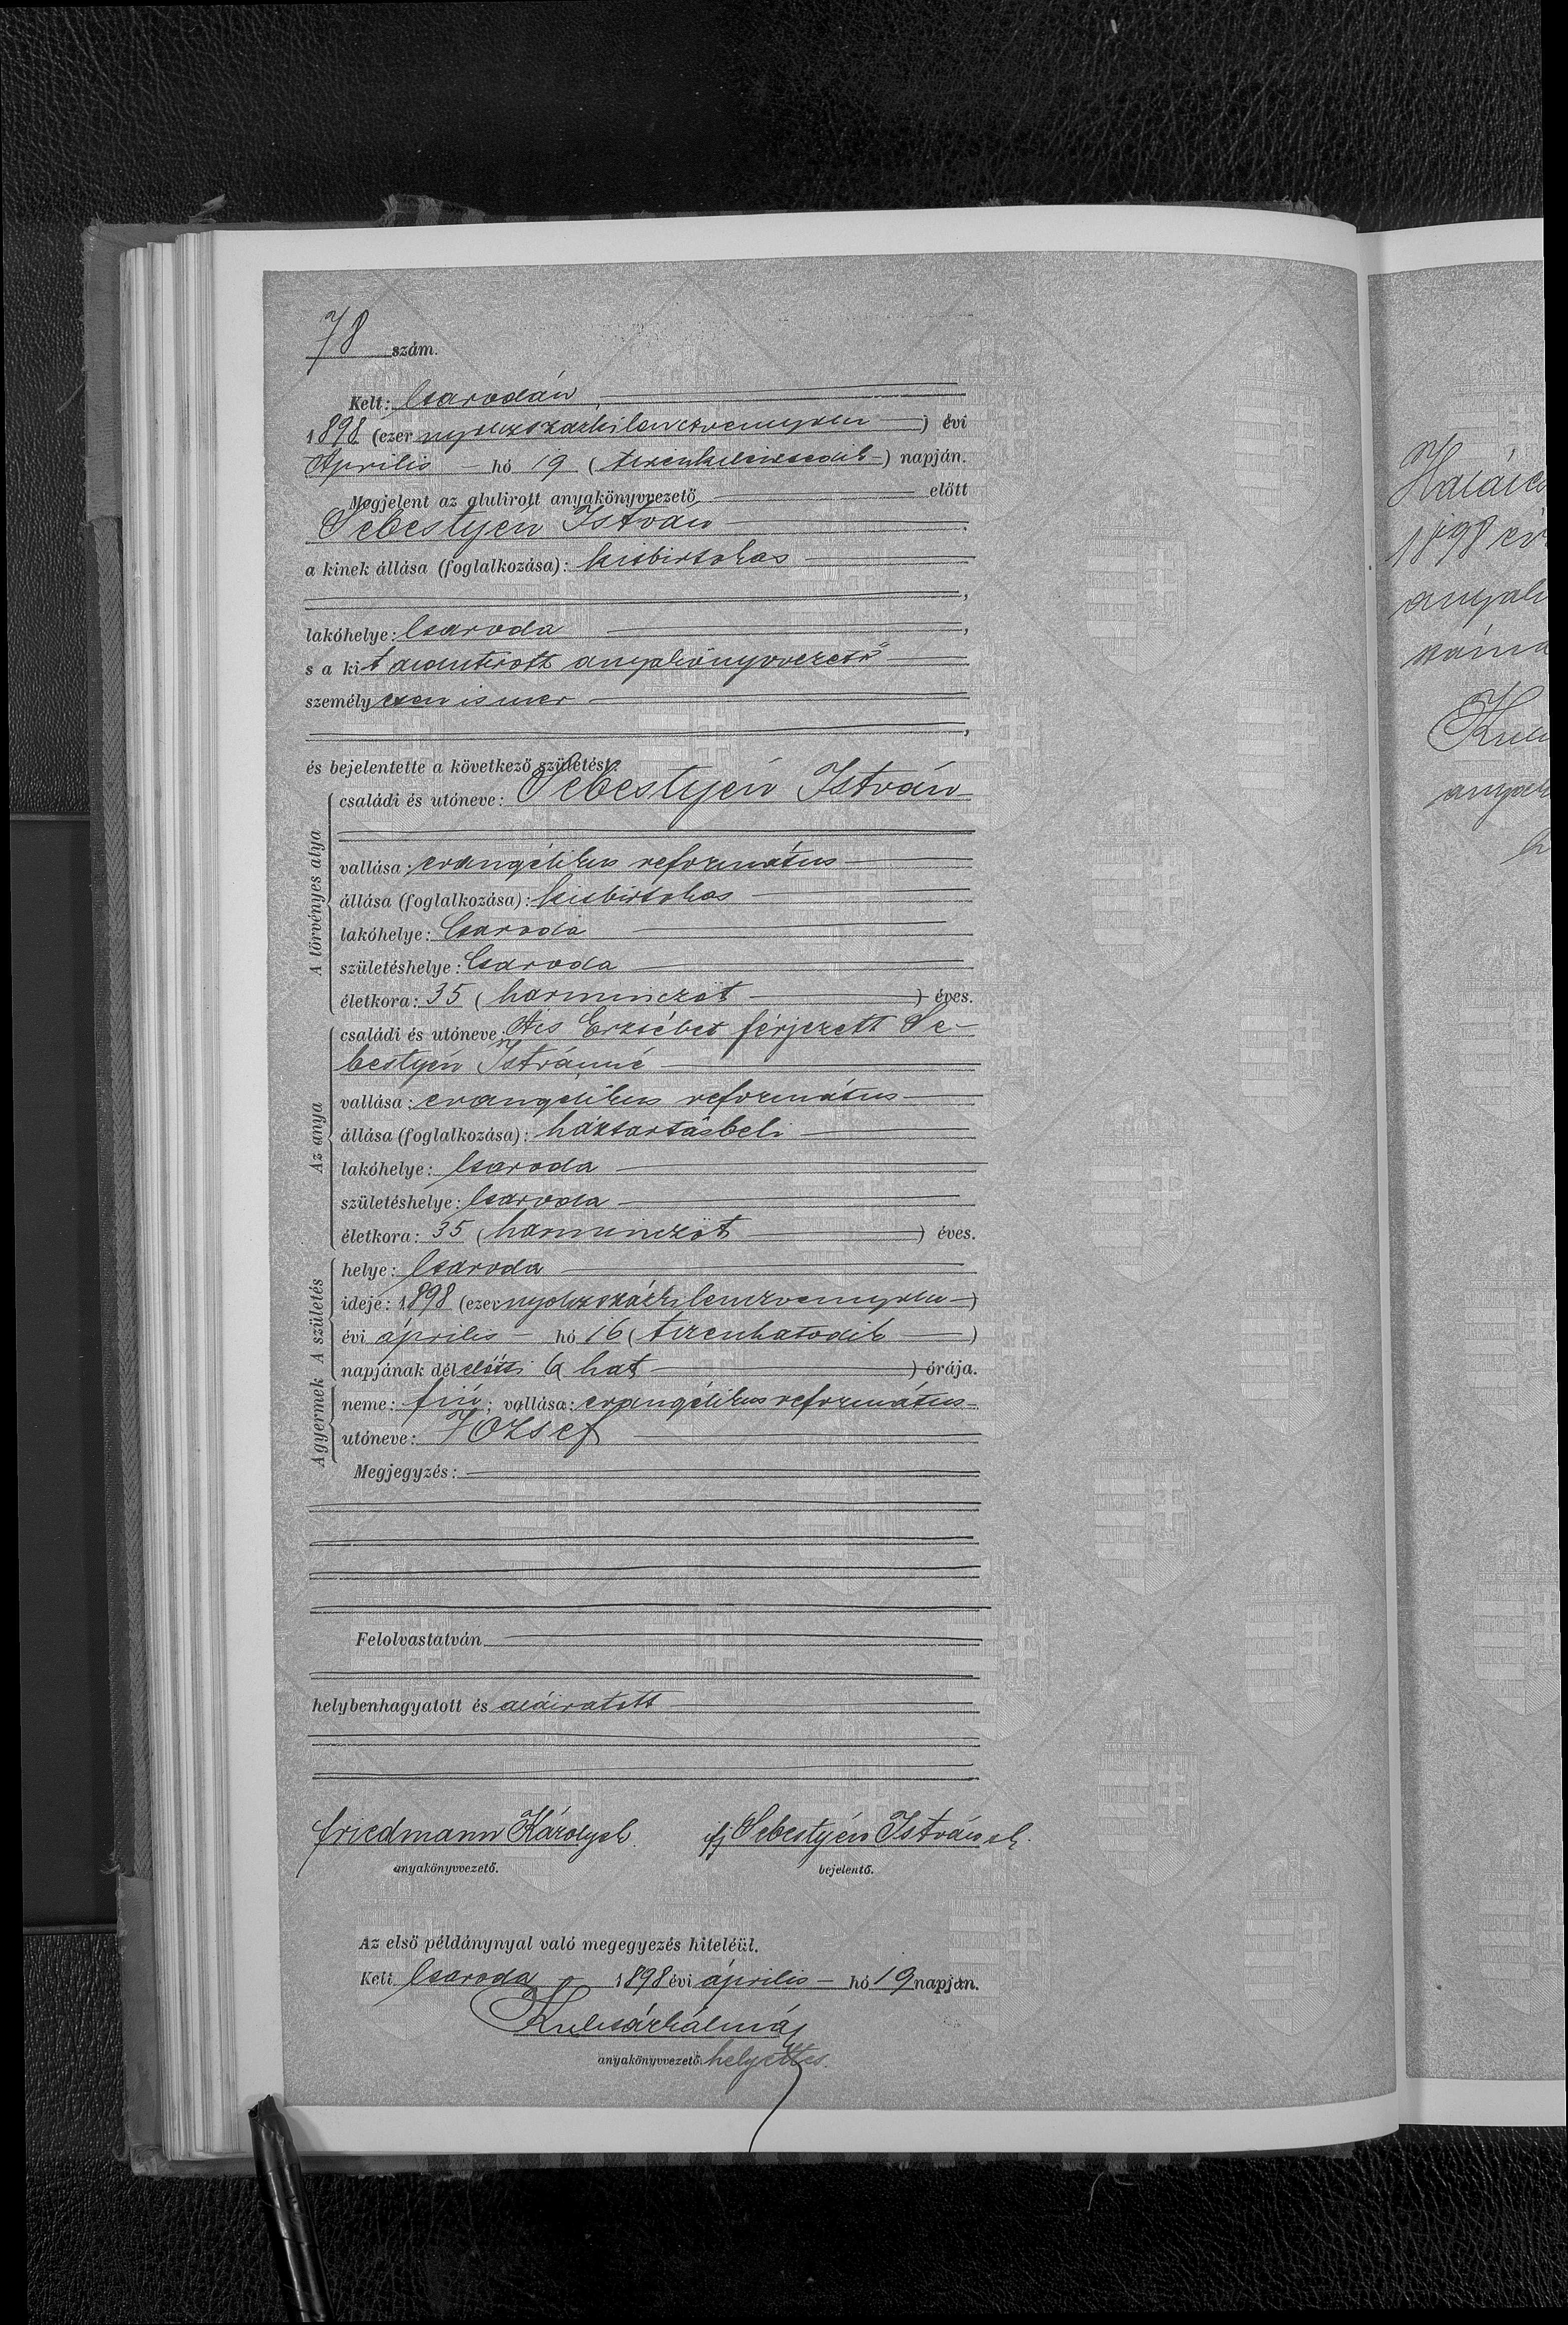 78 szám.
Kelt: Csarodán,
1898 (ezernyolczszázkilenczvennyolcz) évi
április hó 19 (tizenkilenczedik) napján.
Megjelent az alulirott anyakönyvvezető előtt
Sebestyén István
a kinek állása (foglalkozása): kisbirtokos
lakóhelye: Csaroda
s a kit alantirott anyakönyvvezető
személyesen ismer
és bejelentette a következő születést:
A törvényes atya
családi és utóneve: Sebestyén István
vallása: evangélikus református
állása (foglalkozása): kisbirtokos
lakóhelye: Csaroda
születéshelye: Csaroda
életkora: 35 (harminczöt) éves.
Az anya
családi és utóneve: Kis Erzsébet férjezett Se-
bestyén Istvánné
vallása: evangelikus református
állása (foglalkozása): háztartásbeli
lakóhelye: Csaroda
születéshelye: Csaroda
életkora: 35 (harminczöt) éves.
A születés
helye: Csaroda
ideje: 1898 (ezernyolczszázkilenczvennyolcz)
évi április hó 16 (tizenhatodik)
napjának délelőtti 6 hat) órája.
A gyermek
neme: fiú; vallása: evangélikus református
utóneve: József
Megjegyzés:
Felolvastatván
helybenhagyatott és aláiratott
Friedmann Károly sk. ifj Sebestyén István sk.
anyakönyvvezető. bejelentő.
Az első példánynyal való megegyezés hiteléül.
Kelt Csaroda 1898 évi április hó 19 napján.
Kulcsár Kálmán
anyakönyvvezető helyettes.
1898 év